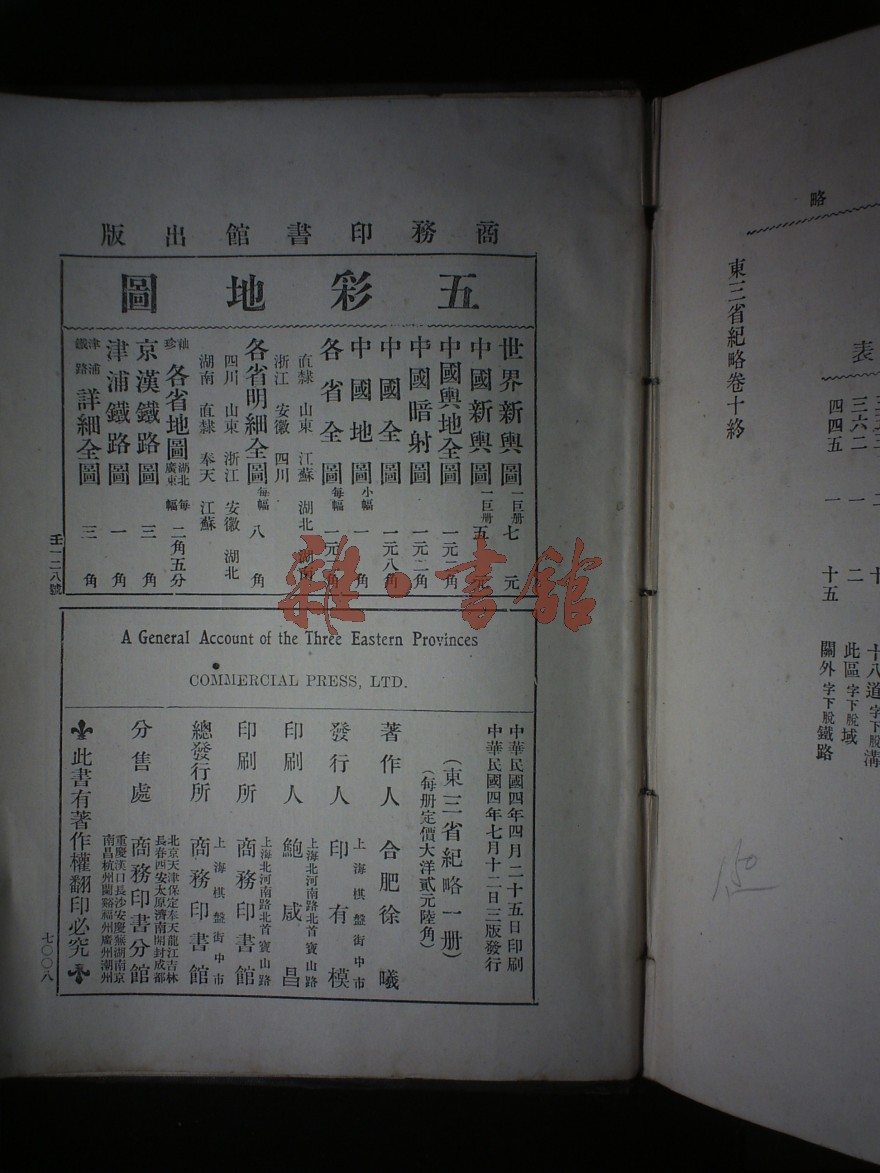 商務印書館出版
五彩地圖
世界新輿圖 一巨册 七元
中國新輿圖 一巨册 五元
中國輿地全圖 一元二角
中國暗射圖 一元二角
中國全圖 一元八角
中國地圖 小幅 一角
各省全圖 每幅 一元二角
直隸 山東 江蘇 湖北 湖南
浙江 安徽 四川
各省明細全圖 每幅 八角
四川 山東 浙江 安徽 湖北
湖南 直隸 奉天 江蘇
袖珍 各省地圖 湖北 廣東 每幅 二角五分
京漢鐵路圖 三角
津浦鐵路圖 一角
津浦鐵路 詳細全圖 三角
壬一二八號
A General Account of the Three Eastern Provinces
COMMERCIAL PRESS, LTD.
中華民國四年四月二十五日印刷
中華民國四年七月十二日三版發行
(東三省紀略一册)
(每册定價大洋貳元陸角)
著作人 合肥徐曦
發行人 上海棋盤街中市 印有模
印刷人 上海北河南路北首寶山路 鮑咸昌
印刷所 上海北河南路北首寶山路 商務印書館
總發行所 上海棋盤街中市 商務印書館
分售處 北京天津保定奉天龍江吉林
長春西安太原濟南開封成都
商務印書分館
重慶漢口長沙安慶蕪湖南京
南昌杭州蘭谿福州廣州潮州
此書有著作權翻印必究
七〇〇八
略
表
三六二 一 二 此區 字下脫域
四四五 一 十五 關外 字下脫鐵路
十八道 字下脫溝
東三省紀略卷十終
150
雜·書館